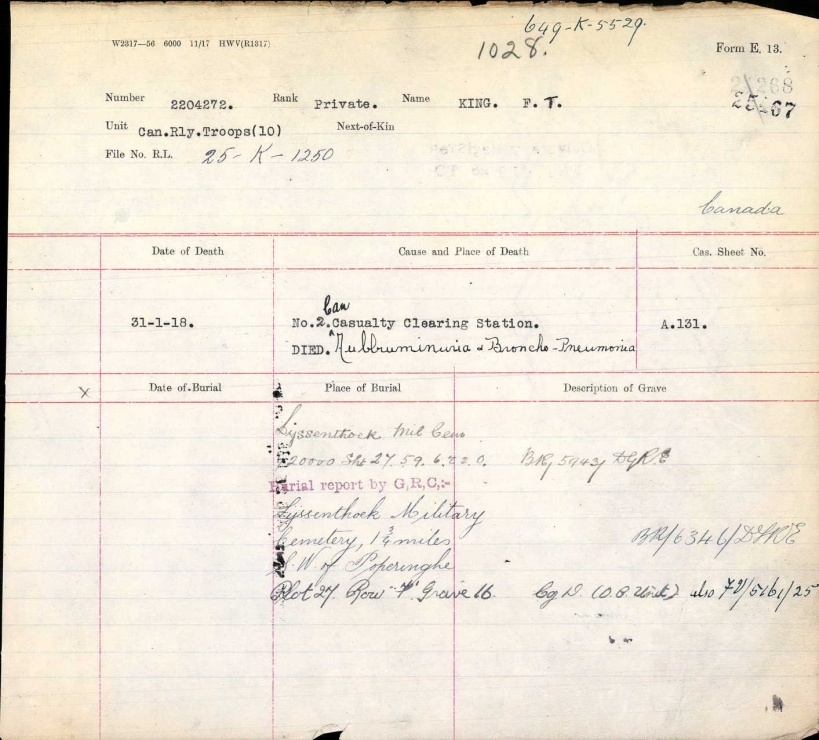 649-K-5529.
1028.
W2317—56 6000 11/17 HWV(R1317)
Form E. 13.
25 67
Number 2204272. Rank Private. Name KING. F. T.
Unit Can.Rly.Troops(10) Next-of-Kin
File No. R.L. 25-K-1250
Canada
Date of Death Cause and Place of Death Cas. Sheet No.
Can
31-1-18. No.2.Casualty Clearing Station. A.131.
DIED. & Broncho-Pneumonia
X Date of Burial Place of Burial Description of Grave
Lyssenthoek Mil Cem
20000 Sht 27. 59. 6. 2 2. 0. BR/5943/DGRE
Burial report by G,R,C,:-
Lyssenthoek Military
Cemetery, 1¾ miles BR/6346/DGRE
S.W of Poperinghe
Plot 27. Row "F" Grave 16. (O.B. Unit) also 5161/25